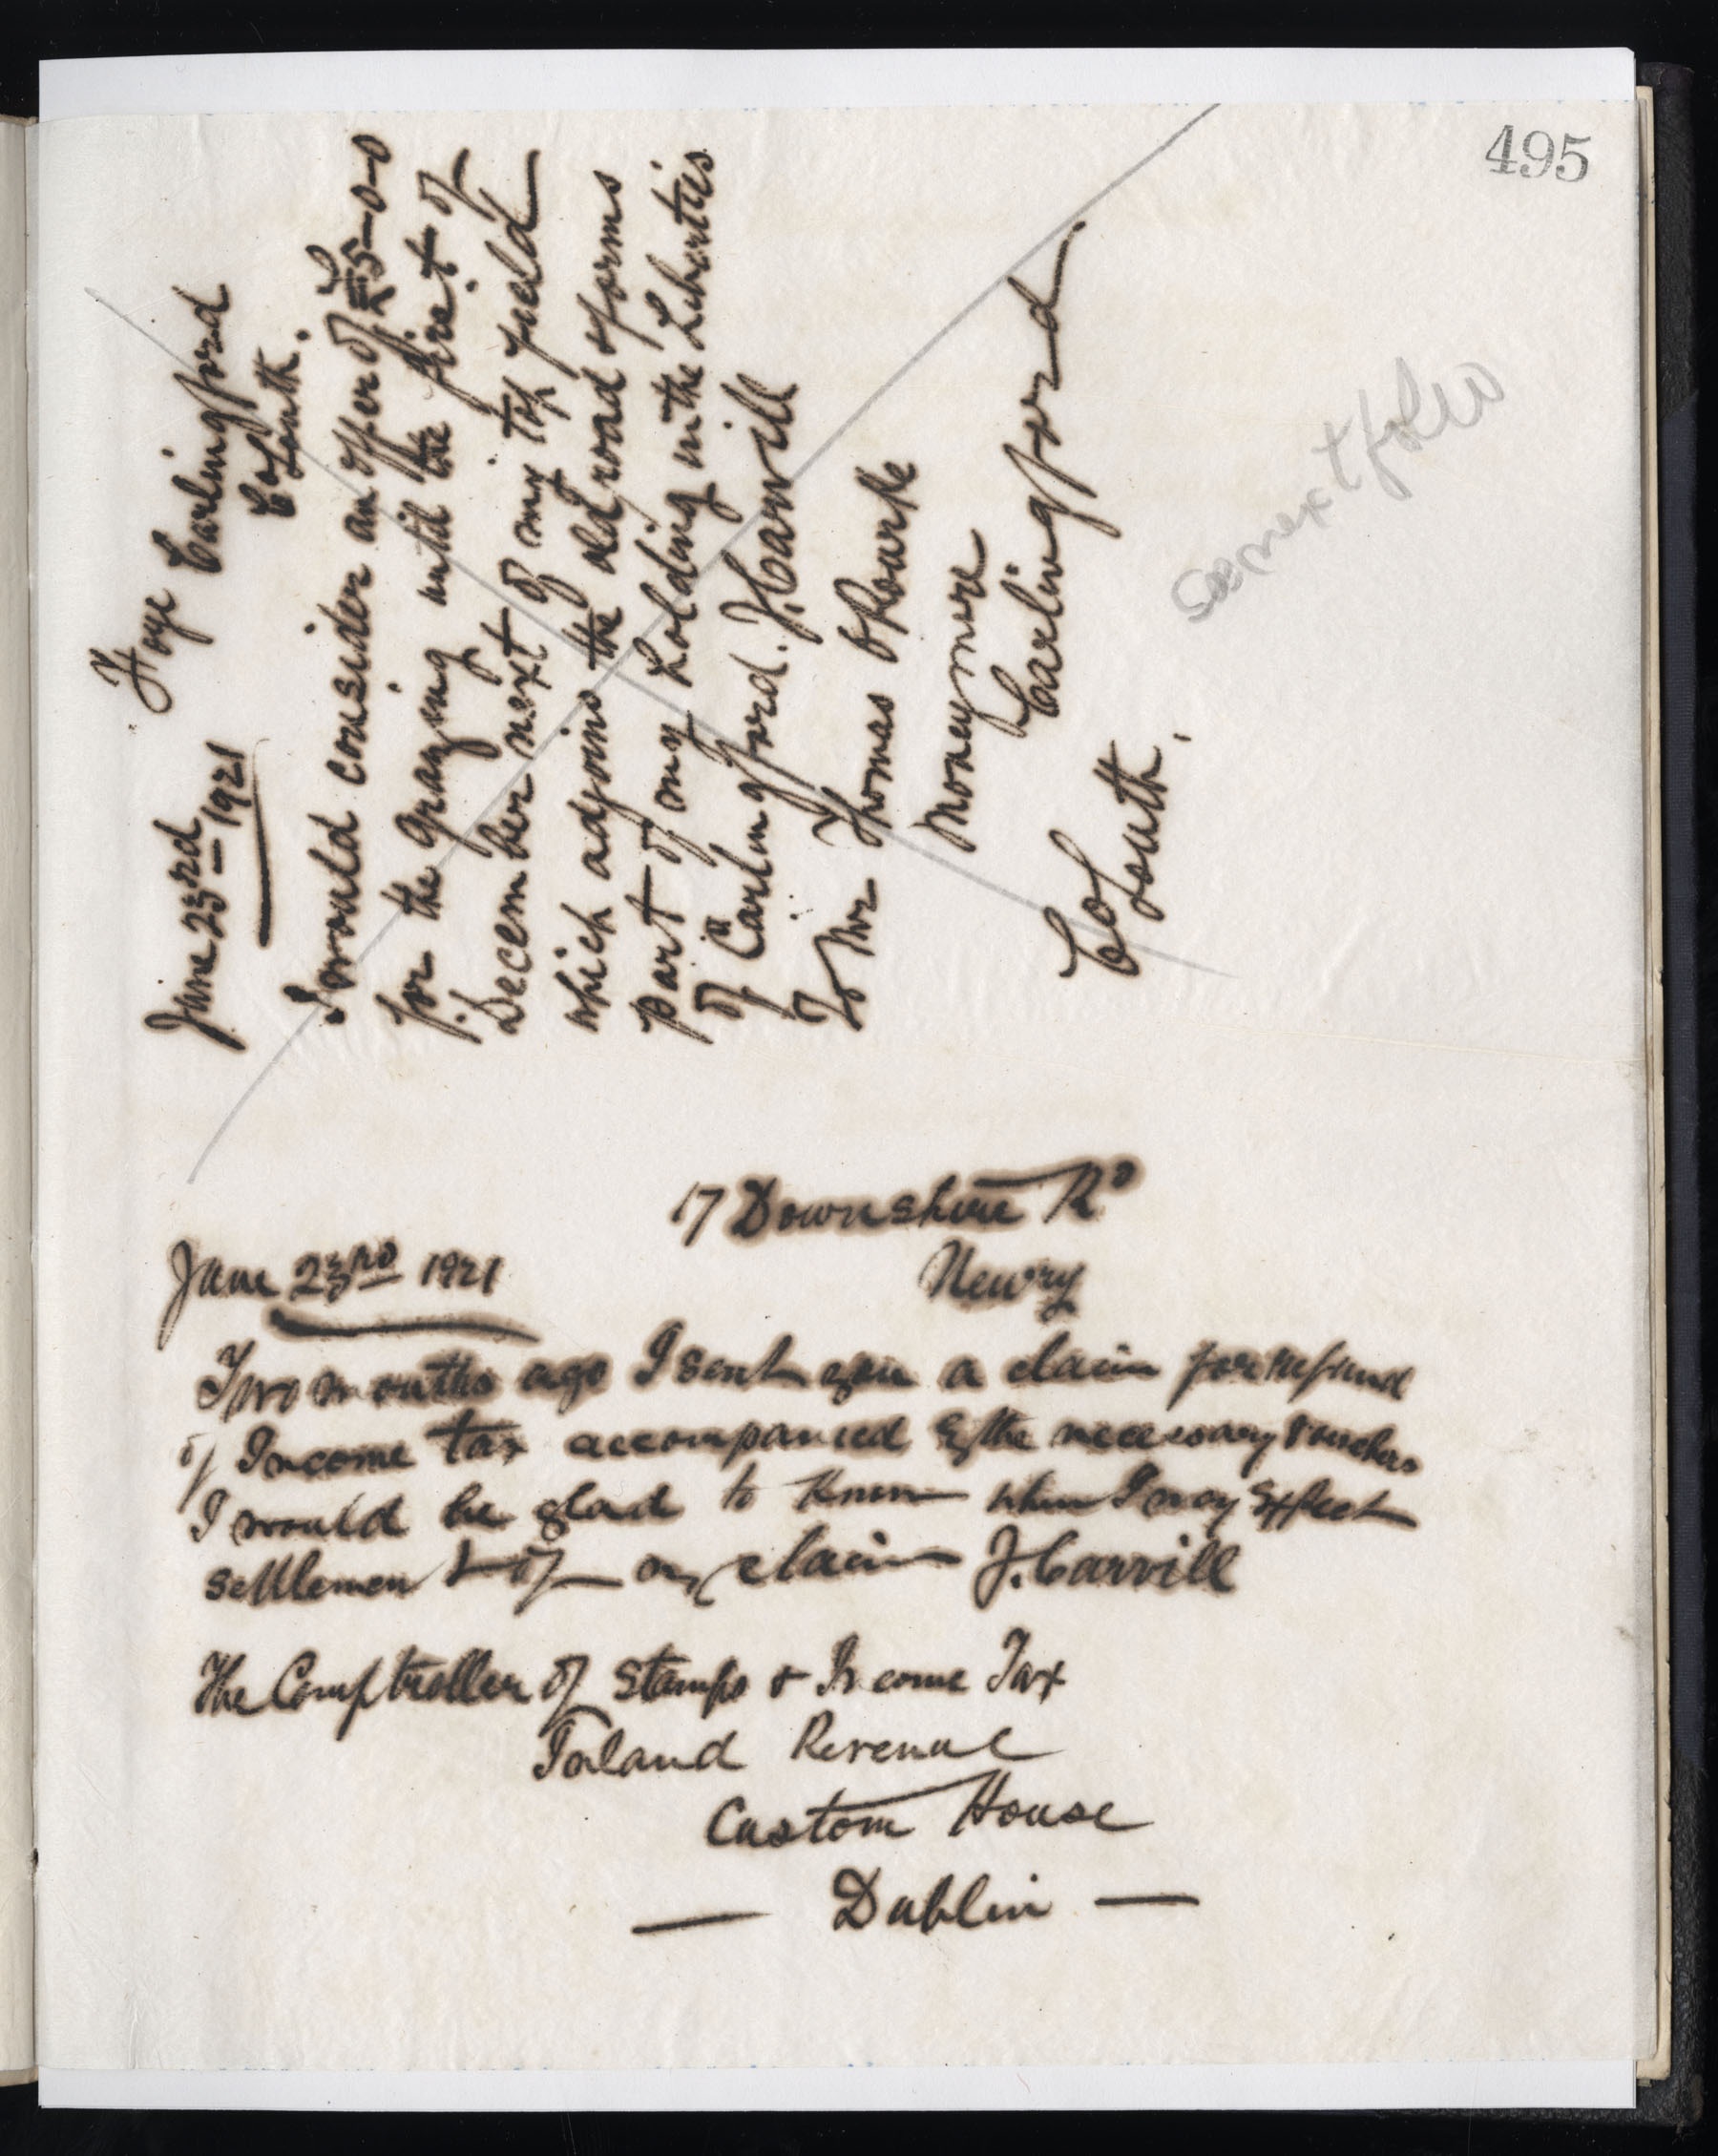 495
June 23rd 1921 Foye Carlingford
Co Louth.
I would consider an offer of £5-0-0
for the grazing until the first of
December next of my top field
which adjoins the old road & forms
part of my holding in the Liberties
of Carlingford. J. Carvill
To Mr Thomas O Rourke
Mooneymore
Carlingford
Co Louth.
see next folio
17 Downshire Rd
June 23rd 1921 Newry
Two months ago I sent you a claim for refund
of Income tax accompanied by the necessary vouchers
I would be glad to know when I may expect
settlement of my claim J. Carvill
The Comptroller of Stamps & Income Tax
Inland Revenue
Custom House
— Dublin —